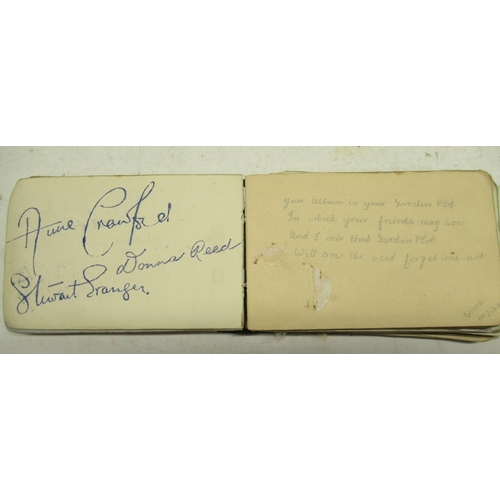 Anne Crawford
Donna Reed
Stewart Granger
Your album is your Garden Plot
In which your friends may sow
And I into that Garden Plot
Will sow the seed forget-me-not